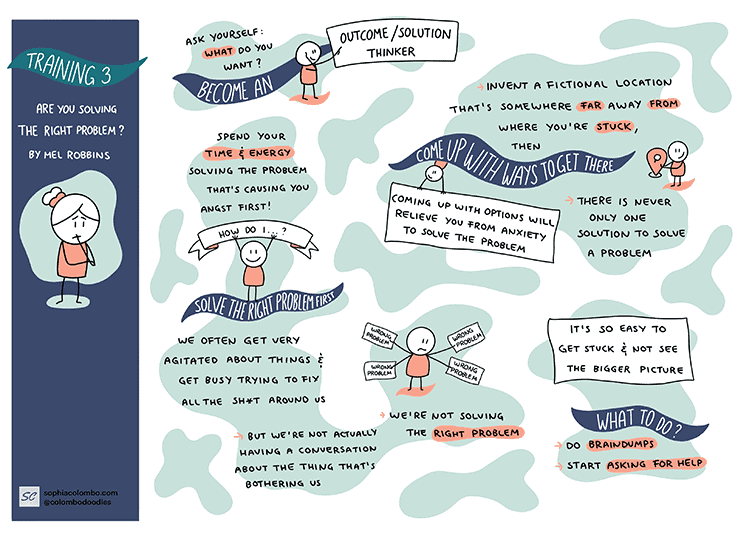 TRAINING 3
ARE YOU SOLVING
THE RIGHT PROBLEM?
BY MEL ROBBINS
SC
sophiacolombo.com
@colombodoodles
ASK YOURSELF:
WHAT DO YOU
WANT?
BECOME AN
OUTCOME/SOLUTION
THINKER
SPEND YOUR
TIME & ENERGY
SOLVING THE PROBLEM
THAT'S CAUSING YOU
ANGST FIRST!
HOW DO I...?
SOLVE THE RIGHT PROBLEM FIRST
WE OFTEN GET VERY
AGITATED ABOUT THINGS &
GET BUSY TRYING TO FIX
ALL THE SH*T AROUND US
→ BUT WE'RE NOT ACTUALLY
HAVING A CONVERSATION
ABOUT THE THING THAT'S
BOTHERING US
WRONG
PROBLEM
WRONG
PROBLEM
WRONG
PROBLEM
WRONG
PROBLEM
→ WE'RE NOT SOLVING
THE RIGHT PROBLEM
→ INVENT A FICTIONAL LOCATION
THAT'S SOMEWHERE FAR AWAY FROM
WHERE YOU'RE STUCK,
THEN
COME UP WITH WAYS TO GET THERE
COMING UP WITH OPTIONS WILL
RELIEVE YOU FROM ANXIETY
TO SOLVE THE PROBLEM
→ THERE IS NEVER
ONLY ONE
SOLUTION TO SOLVE
A PROBLEM
IT'S SO EASY TO
GET STUCK & NOT SEE
THE BIGGER PICTURE
WHAT TO DO?
→ DO BRAINDUMPS
→ START ASKING FOR HELP